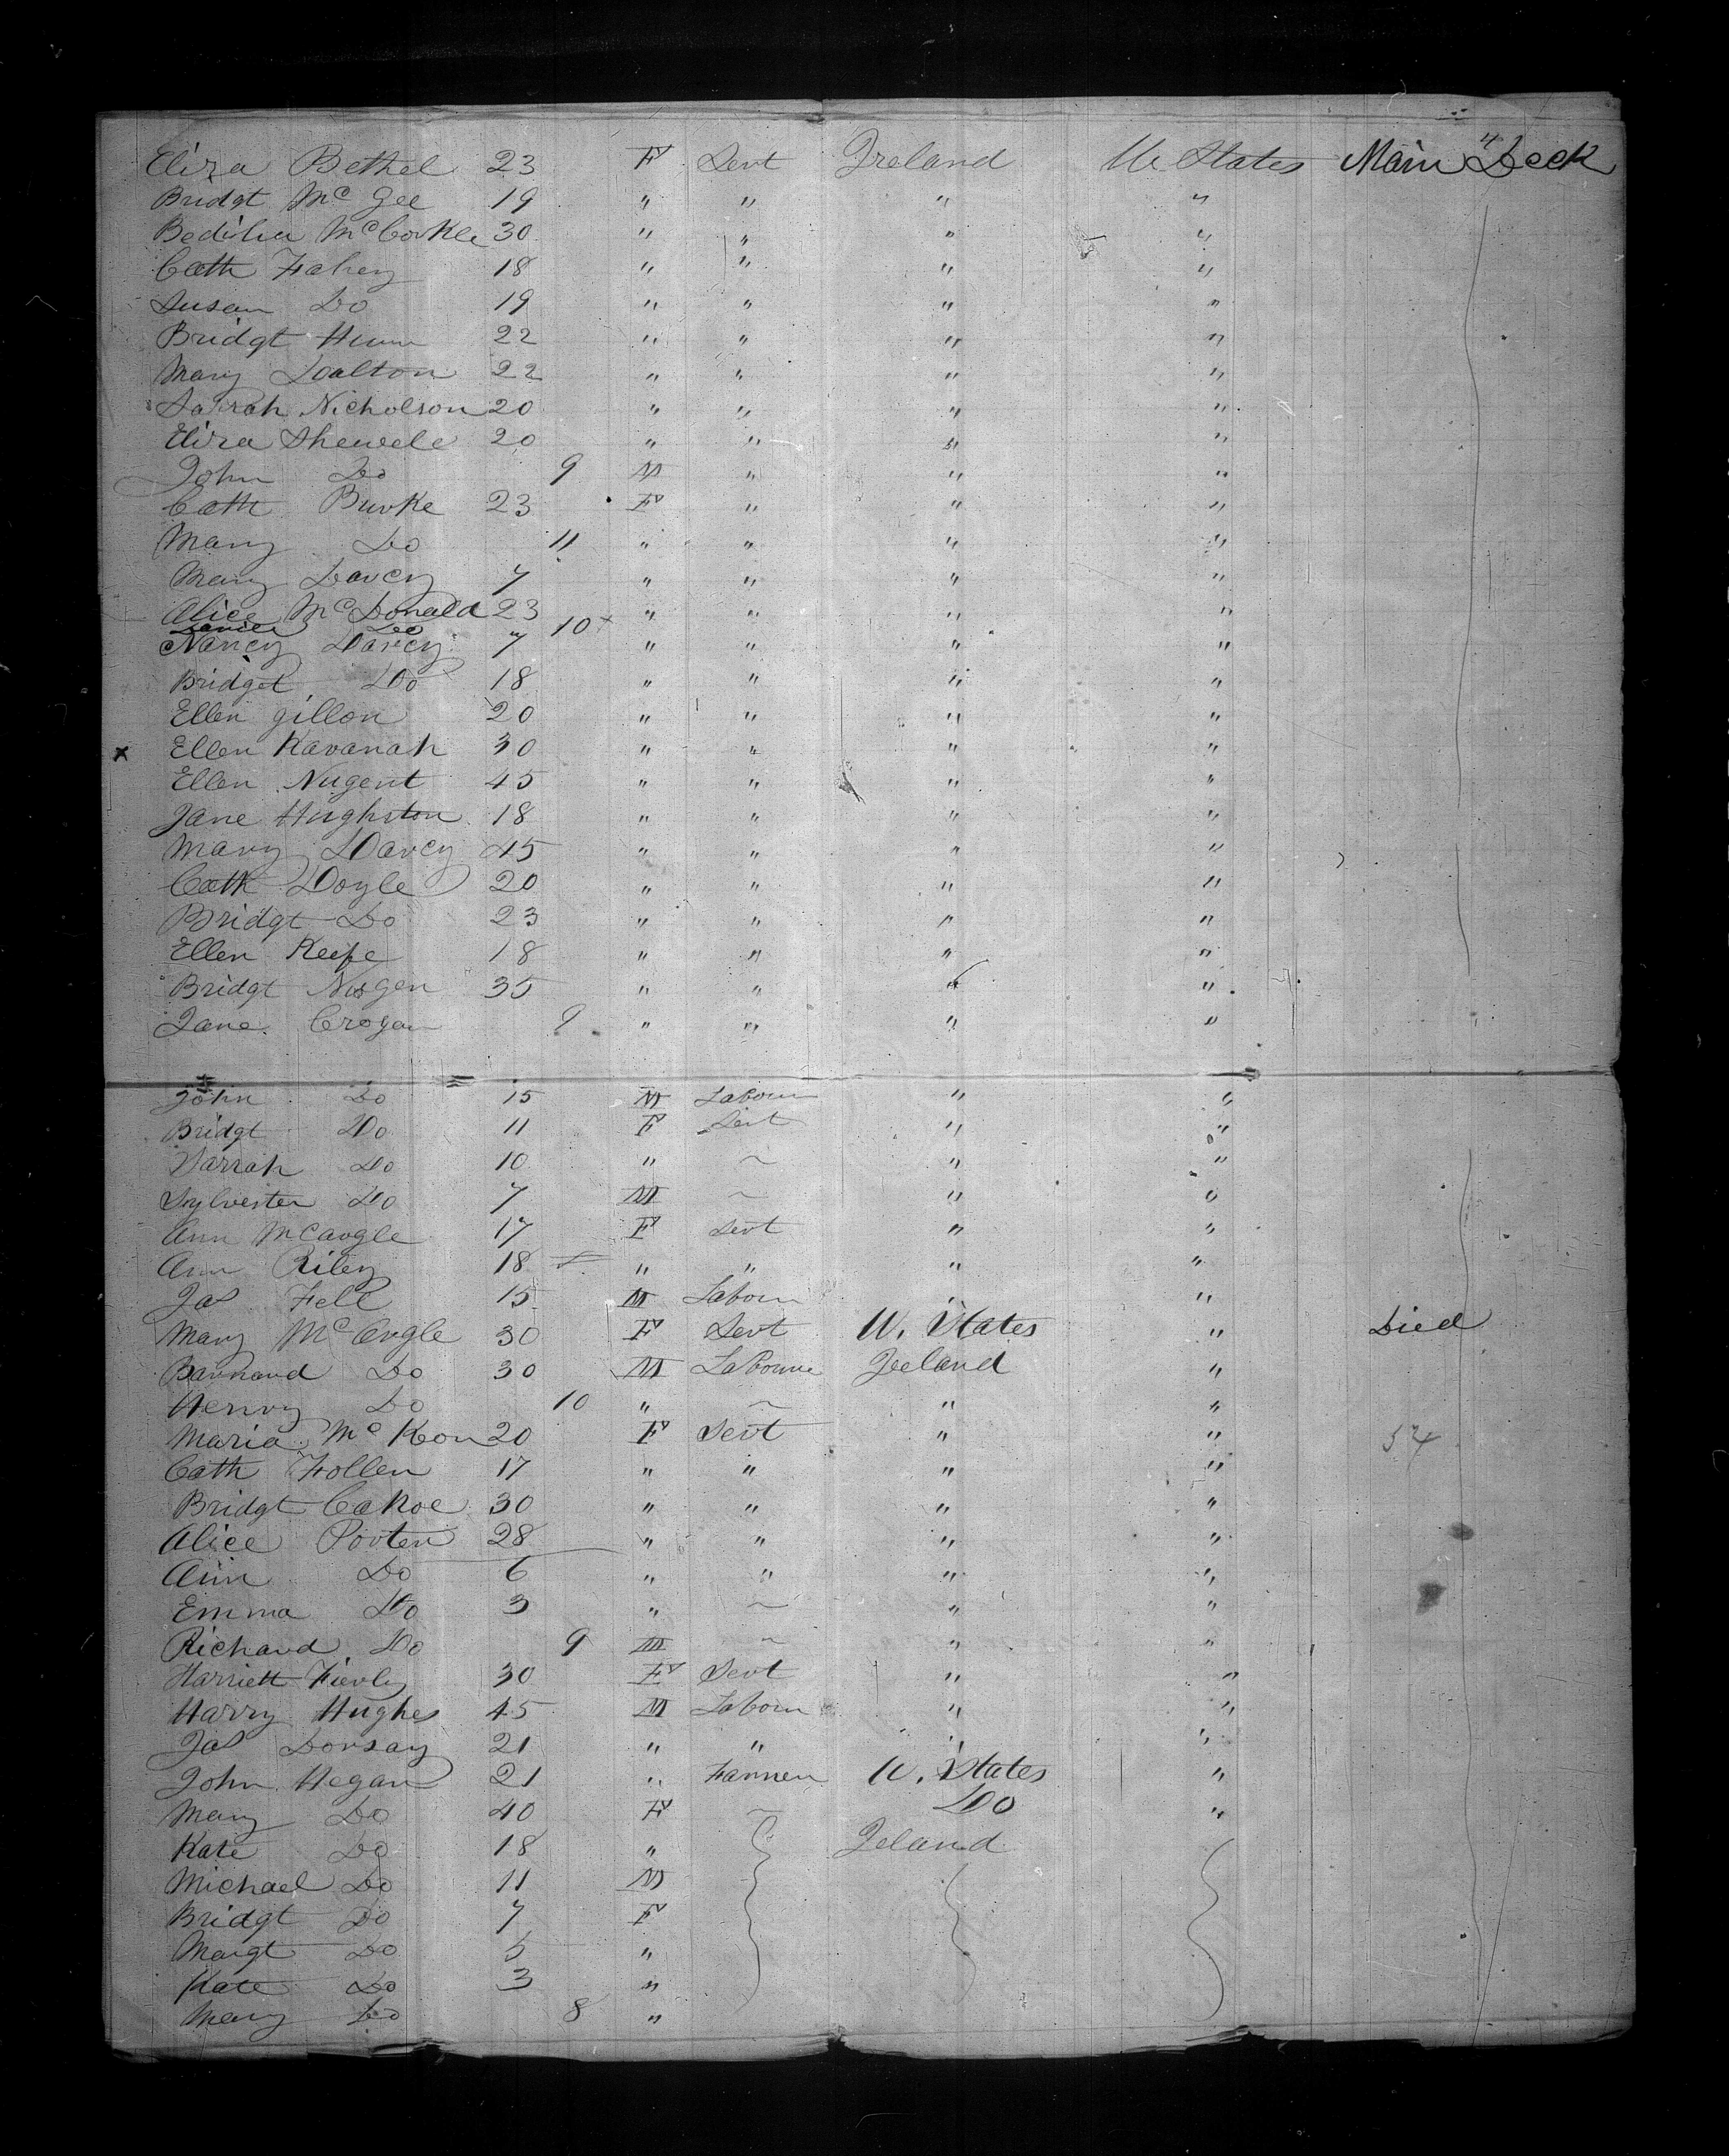 4
Eliza Bethel 23 F Servt Ireland U. States Main Deck
Bridgt Mc Gee 19 " " " "
Bedilia McCorkle 30 " " " "
Cath Fahey 18 " " " "
Susan Do 19 " " " "
Bridgt 22 " " " "
Mary Dalton 22 " " " "
Sarah Nicholson 20 " " " "
Eliza Shewele 20 " " " "
John Do 9 M " " "
Cath Burke 23 F " " "
Mary Do 11 " " " "
Mary Darcy 7 " " " "
Alice McDonald 23 " " " "
Do 10 x
Nancy Darcy 7 " " " "
Bridget Do 18 " " " "
Ellen Gillon 20 " " " "
x Ellen Kavanah 30 " " " "
Ellen Nugent 45 " " " "
Jane Hughston 18 " " " "
Mary Darcy 45 " " " "
Cath Doyle 20 " " " "
Bridgt Do 23 " " " "
Ellen Keefe 18 " " " "
Bridgt Nugen 35 " " " "
Jane Crogan 9 " " " "
John Do 15 M Labour " "
Bridgt Do 11 F Servt " "
Sarrah Do 10 " ~ " "
Sylvester Do 7 M ~ " "
Ann McArgle 17 F Servt " "
Ann Riley 18 " " " "
Jas Fell 15 M Labour " "
Mary McArgle 30 F Servt U. States " Died
Barnard Do 30 M Laboure Ireland "
Henry Do 10 " ~ " "
Maria McKeon 20 F Servt " " 54
Cath Follen 17 " " " "
Bridgt Cahoe 30 " " " "
Alice Porter 28 " " " "
Ann Do 6 " " " "
Emma Do 3 " ~ " "
Richard Do 9 M ~ " "
Harriett Fierly 30 F Servt " "
Harry Hughes 45 M Labour " "
Jas Dorsay 21 " " " "
John Hegan 21 " Farmer U. States "
Mary Do 40 F ~ Do "
Kate Do 18 " Ireland
Michael Do 11 M
Bridgt Do 7 F
Margt Do 5 "
Kate Do 3 "
Mary Do 8 "